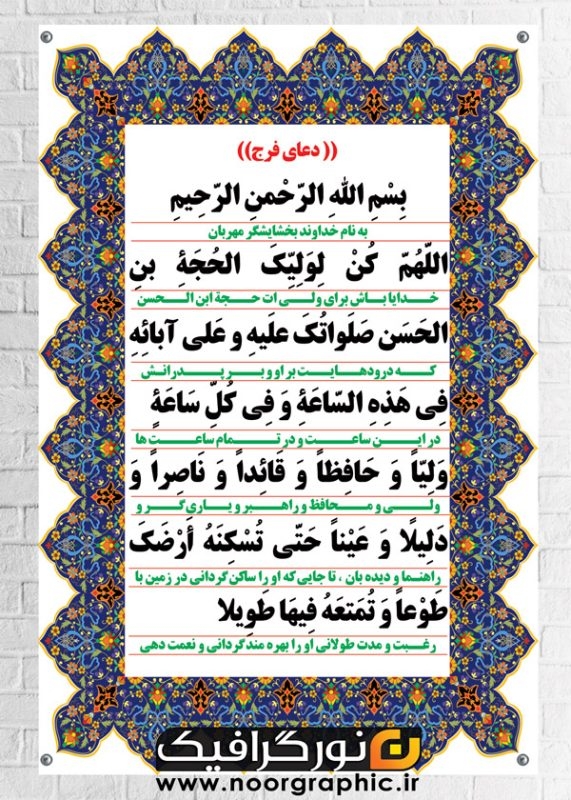 (( دعای فرج))
بِسْمِ اللهِ الرّحْمنِ الرّحِیمِ
به نام خداوند بخشایشگر مهربان
اللّهُمّ کُنْ لِوَلِیِّکَ الحُجَةِ بنِ
خدایا باش برای ولی ات حجة ابن الحسن
الحَسَن صَلَواتُکَ علَیهِ و عَلی آبائِهِ
که درودهایت بر او و بر پدرانش
فِی هَذِهِ السّاعَةِ وَ فِی کُلِّ سَاعَةِ
در این ساعت و در تمام ساعت ها
وَلِیّاً وَ حَافِظاً وَ قَائِداً وَ نَاصِراً وَ
ولی و محافظ و راهبر و یاری گر و
دَلِیلًا وَ عَیْناً حَتّی تُسْکِنَهُ أَرْضَکَ
راهنما و دیده بان ، تا جایی که او را ساکن گردانی در زمین با
طَوْعاً وَ تُمَتعَهُ فِیهَا طَوِیلا
رغبت و مدت طولانی او را بهره مند گردانی و نعمت دهی
نورگرافیک
www.noorgraphic.ir